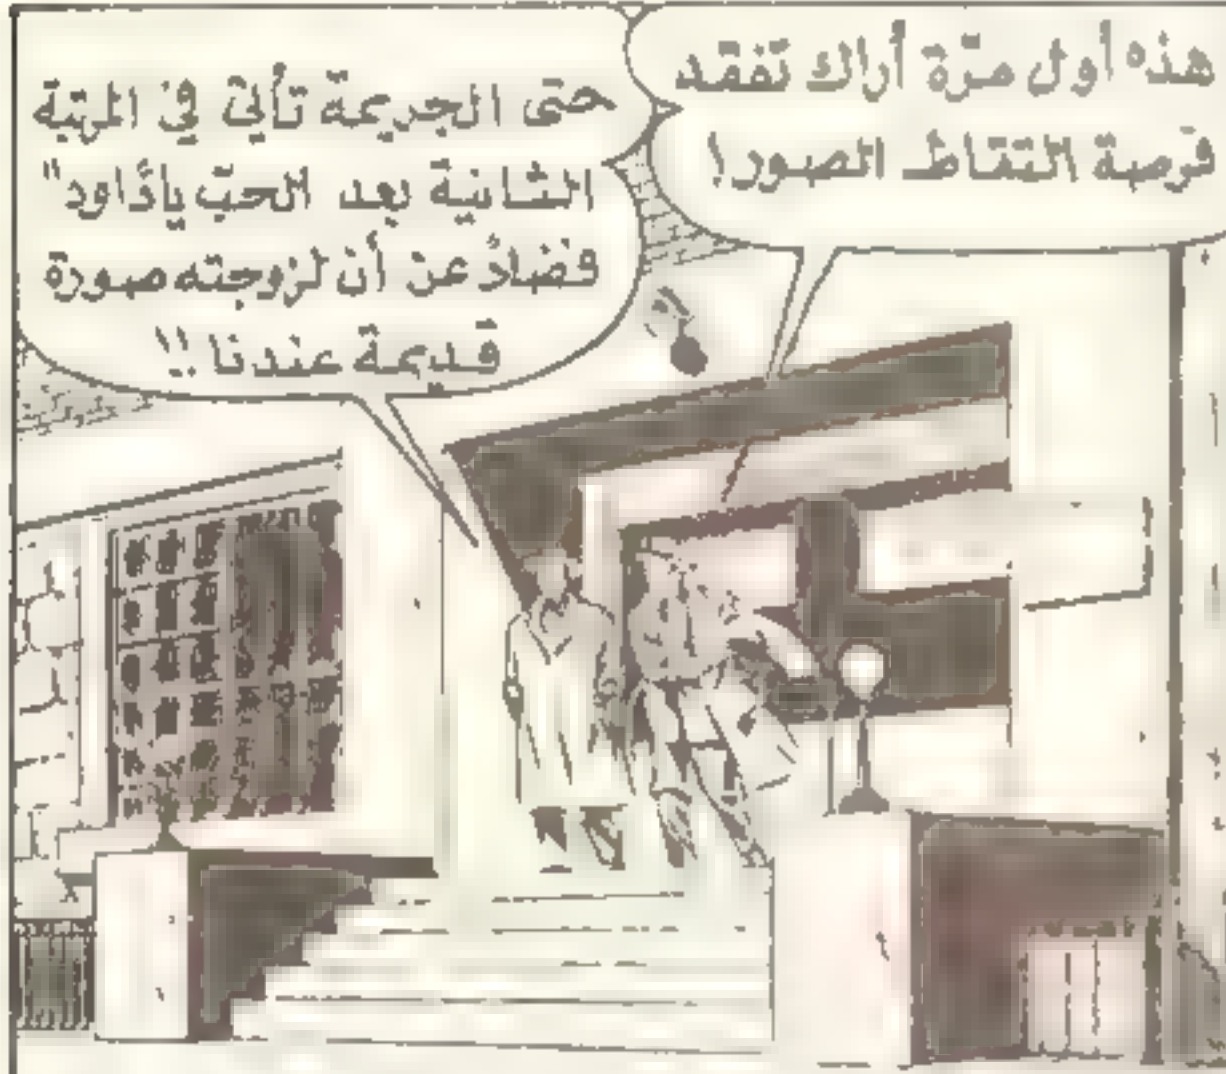 هذه أول مرّة أراك تفقد
فرصة التقاط الصور!
حتى الجريمة تأتي في المرتبة
الثانية بعد الحبّ يا داود"
فضلاً عن أن لزوجته صورة
قديمة عندنا !!